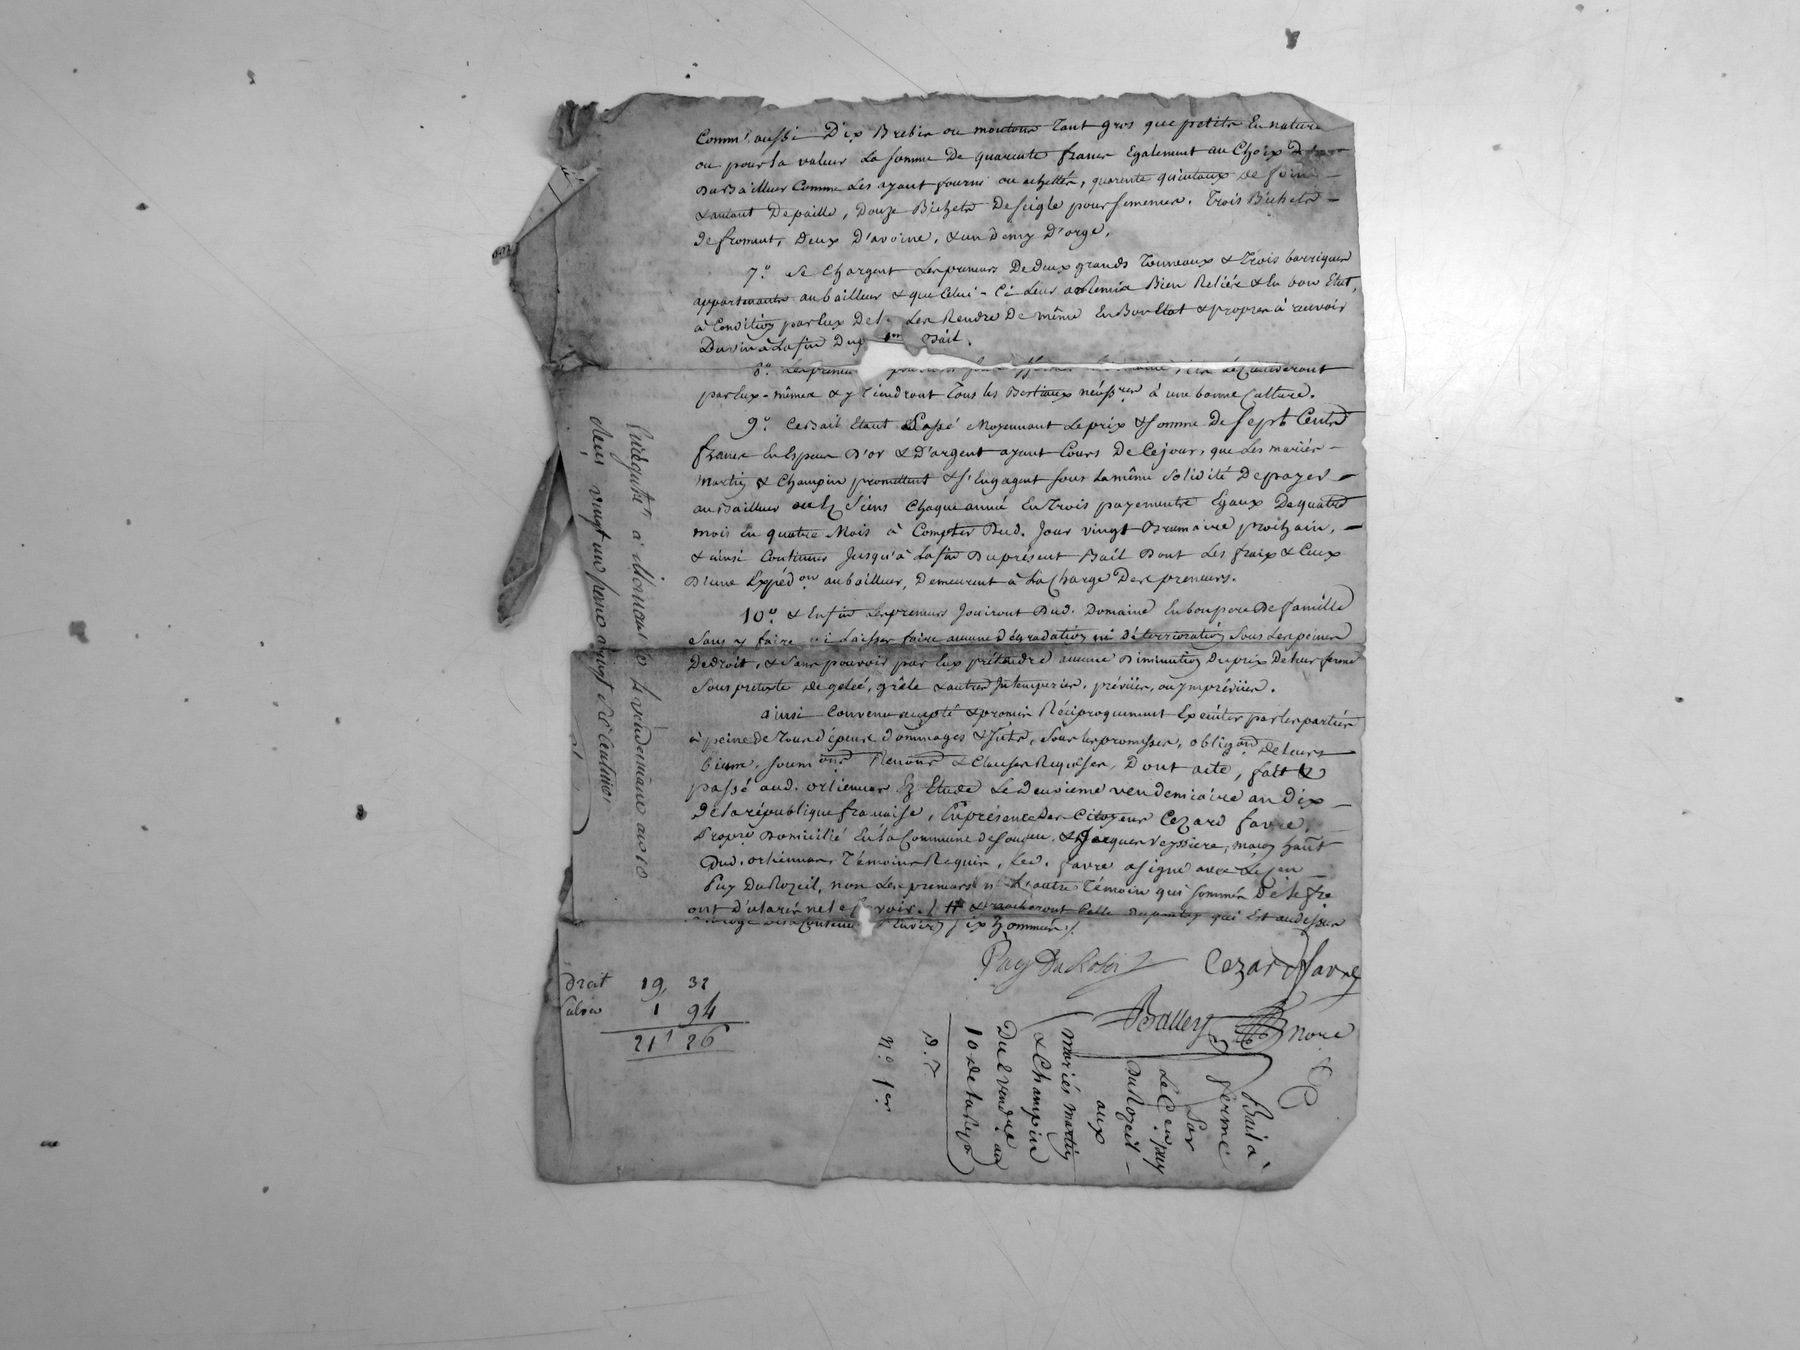 Comme aussi Dix Brebis ou moutons Tant gros que petits En nature
ou pour la valeur La somme De quarente francs Egalement au Choix
Du Bailleur Comme Les ayant fourni ou achettés, quarente quintaux de foin
& autant De paille, Douze Bichets De seigle pour semences. Trois Bichets
de froment, Deux D'avoine, & un Demy D'orge.
7.° Se Chargent Les preneurs De deux grands Tonneaux & Trois barriques
appartenants au bailleur & que Celui-Ci Leur a Remis Bien Reliés & En bon Etat,
à Condition par Eux De Les Rendre De même En Bon Etat & propres à recevoir
Du vin à La fin Du Bail.
8.° Les preneurs
par Eux-mêmes & y Tiendront Tous les Bestiaux nécéssres à une bonne Culture.
9.° Ce Bail Etant Passé Moyennant Le prix & Somme De Sept Cents
francs En Especes D'or & D'argent ayant Cours De Ce jour, que Les mariés
Martin & Champin promettent & s'Engagent sous La même solidité De payer
au Bailleur ou Siens Chaque année En Trois payements Egaux De quatre
mois En quatre Mois à Compter Dud. Jour vingt Brumaire prochain,
& ainsi Continuer Jusqu'à La fin Du présent Bail Dont Les fraix & Ceux
D'une Expédon au bailleur, Demeurent à La Charge Des preneurs.
10.° & Enfin Les preneurs Jouiront Dud. Domaine En bon pere De famille
Sans y faire ni Laisser faire aucune Dégradation ni détérrioration Sous Les peines
De droit, & Sans pouvoir par Eux prétendre aucune Diminution Du prix De leur ferme
Sous pretexte de gelée, grêle & autres Intemperies, préviies, ou Impréviies.
ainsi Convenu accepté & promis Réciproquement Executer par Les parties
à peine de Tous dépens dommages & Jnts, Sous Les promesses, obligaon de Leurs
biens, Soumons Renons & Clauses Requises, Dont acte, fait &
passé aud. ortiennes Etude Le Deuxieme vendemiaire an Dix
De La république francaise, En présence Des Citoyens Cezard favre,
propre Domicilié En La Commune de & Jacques Veyssiere, maçon hant
Dud. ortiennes Témoins Requis, Led. favre a signé avec Le Cen
Puy Du Rozeil, non Les preneurs ni L'autre Témoin qui sommés De Le fre
ont D'éclaré ne Le Savoir. & arracheront Celle qui Est au Dessus
six hommes.
Puy Du Rosei Cezard favre
Balley nore
Droit 19, 32
Subon 1 94
21f 26
Enregistré à Le vendemiaire an 10
Reçu vingt un francs vingt six Centimes
Bail à
ferme
Par
Le Cen puy
Du Rozeil
aux
Mariés Martin
& Champin
Du 2 vendre an
10 de La Rep
N.° 1er